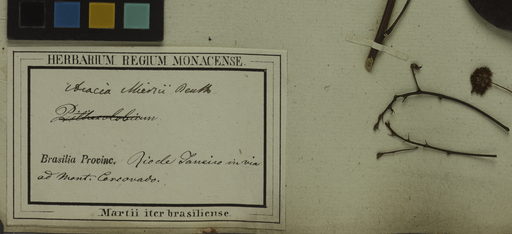 HERBARIUM REGIUM MONACENSE.
Acacia Miersii Benth
Pithecolobium
Brasilia Provinc. Rio de Janeiro in via
ad Mont. Corcovado.
Martii iter brasiliense.